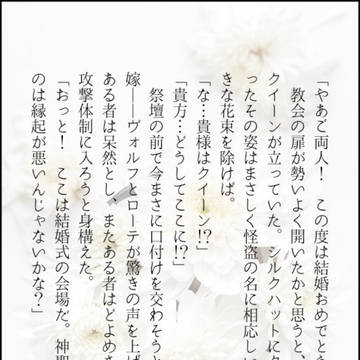 「やあご両人！　この度は結婚おめでと
教会の扉が勢いよく開いたかと思うと、
クイーンが立っていた。シルクハットにタ
ったその姿はまさしく怪盗の名に相応しい
きな花束を除けば。
「な…貴様はクイーン!?」
「貴方…どうしてここに!?」
祭壇の前で今まさに口付けを交わそうと
嫁――ヴォルフとローテが驚きの声を上げ
ある者は呆然とし、またある者はどよめき
攻撃体制に入ろうと身構えた。
「おっと！　ここは結婚式の会場だ。神聖
のは縁起が悪いんじゃないかな？」